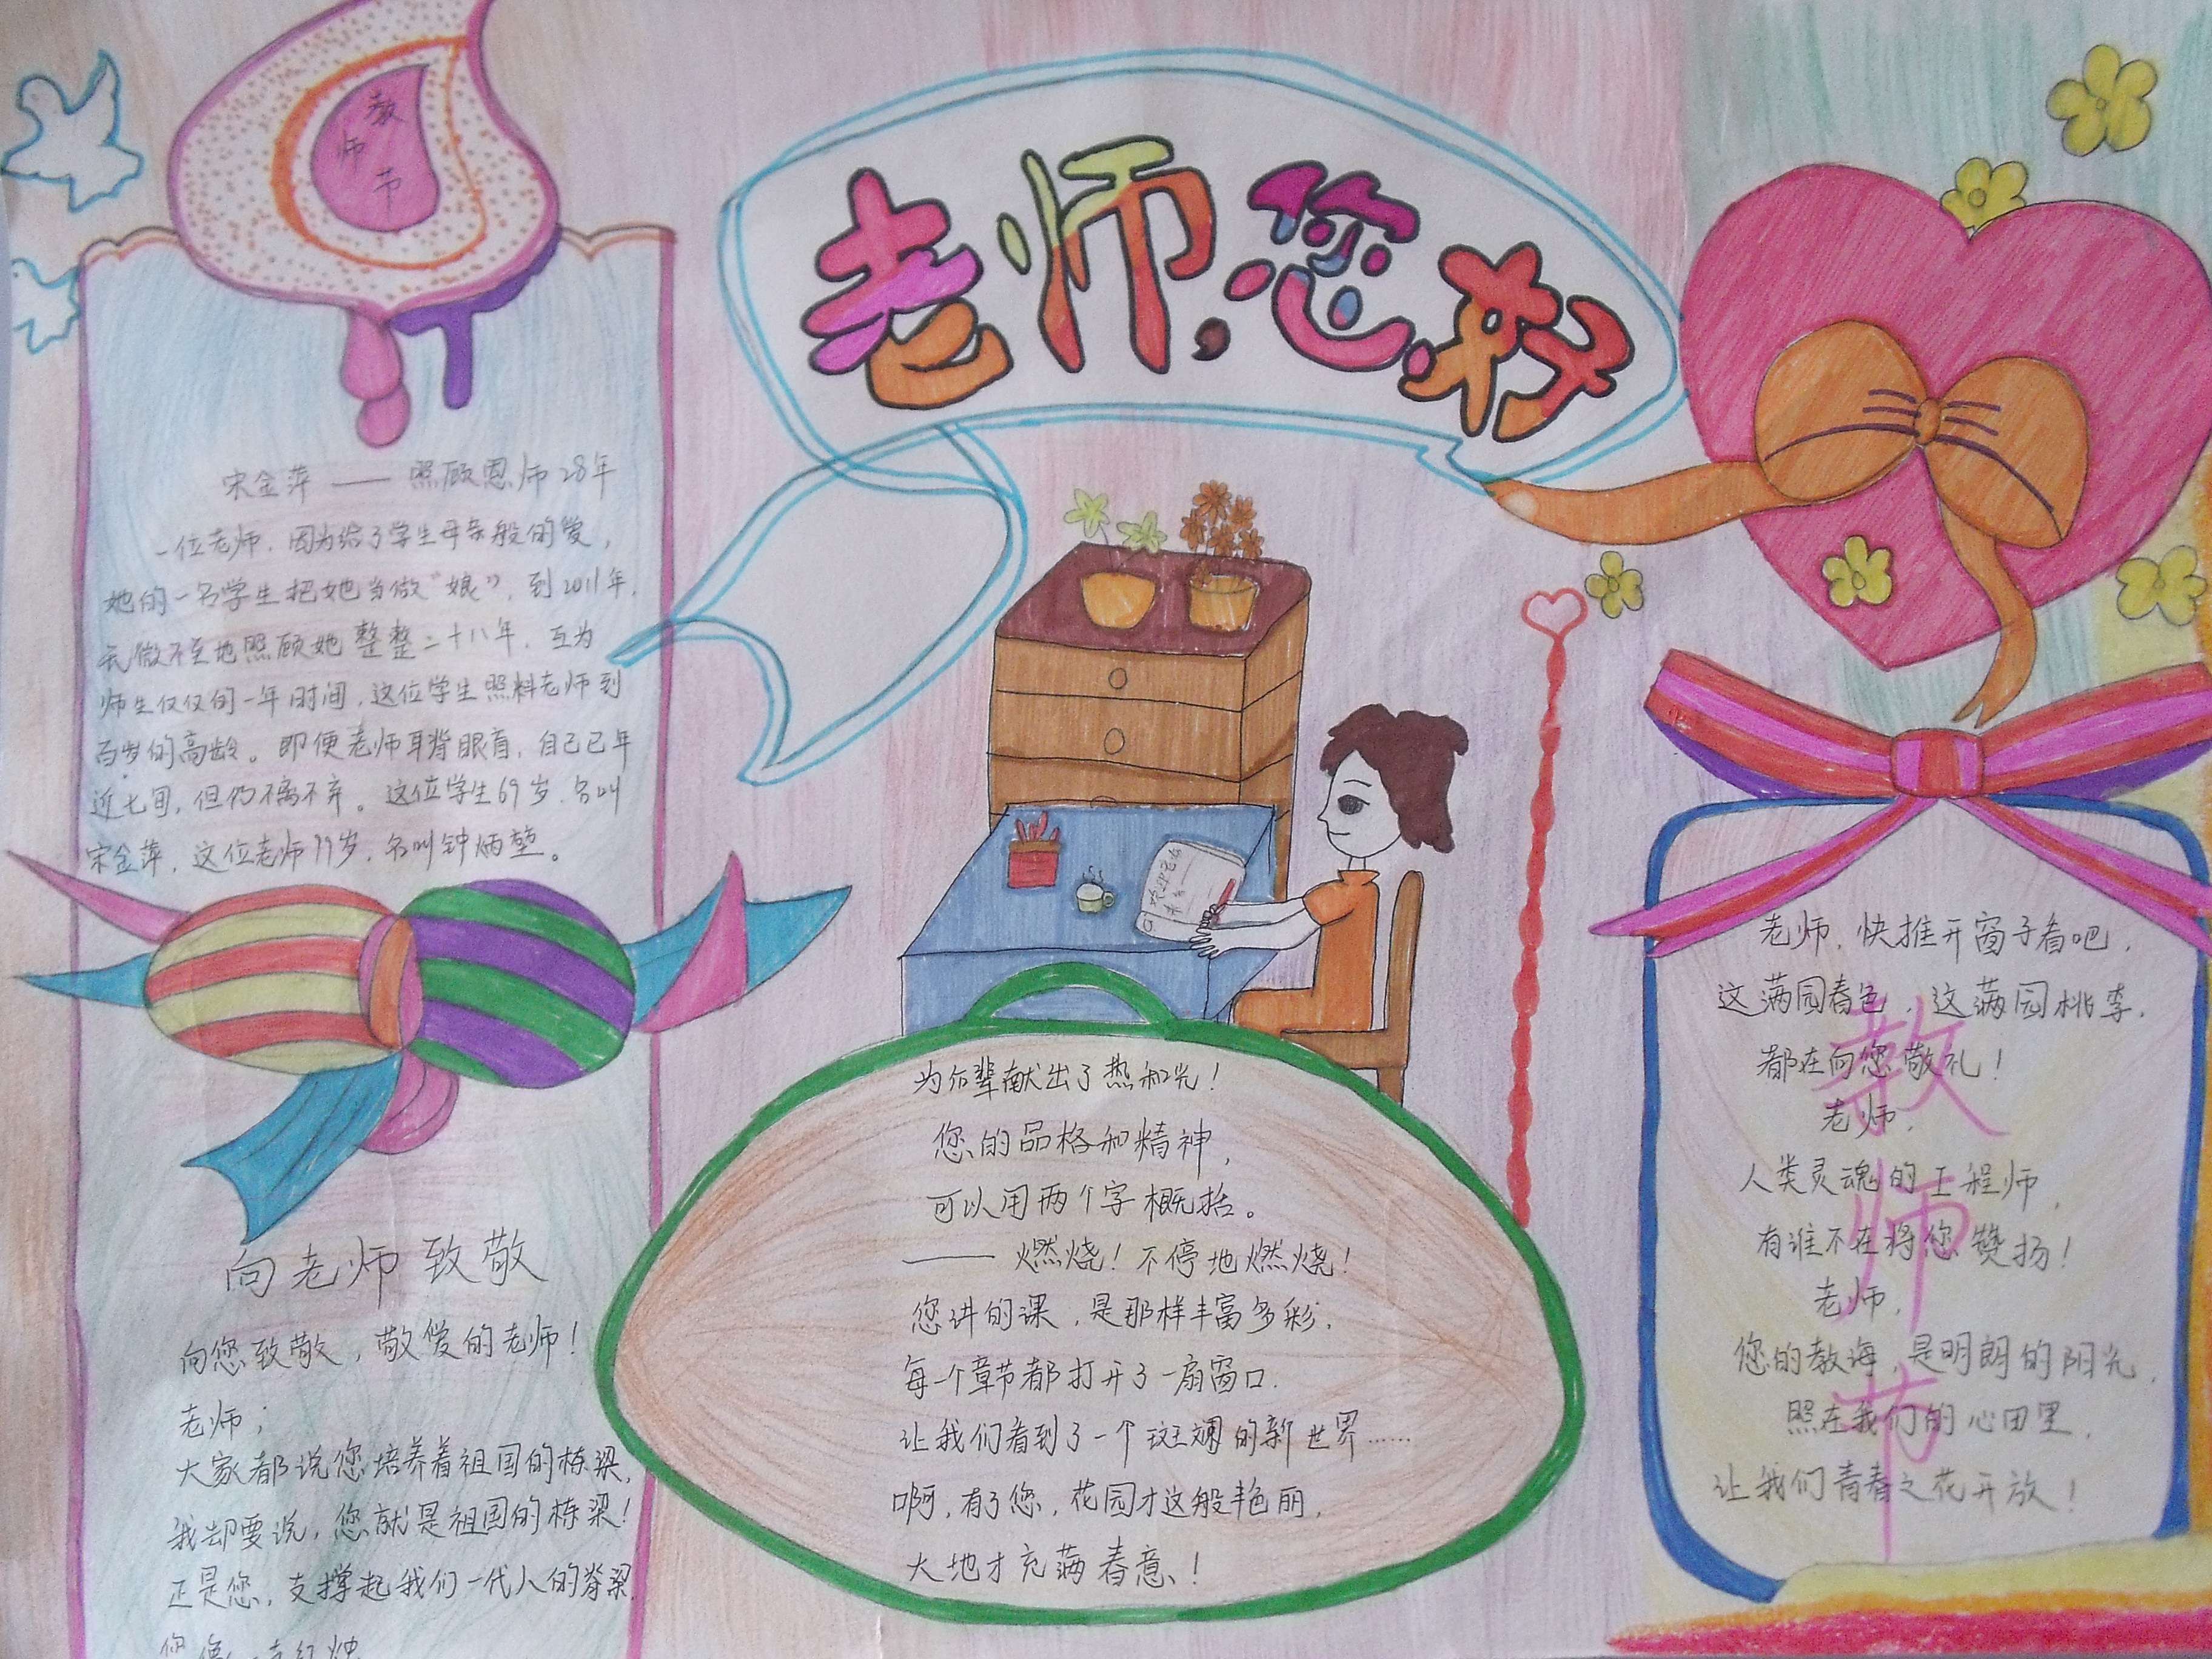 教师节
老师,您好
宋金萍——照顾恩师28年
一位老师,因为给了学生母亲般的爱,
她的一名学生把她当做“娘”,到2011年,
无微不至地照顾她整整二十八年,互为
师生仅仅的一年时间,这位学生照料老师到
百岁的高龄。即便老师耳背眼盲,自己已年
近七旬,但仍不离不弃。这位学生69岁,名叫
宋金萍,这位老师99岁,名叫钟炳堃。
向老师致敬
向您致敬,敬爱的老师!
老师;
大家都说您培养着祖国的栋梁,
我却要说,您就是祖国的栋梁!
正是您,支撑起我们一代人的脊梁,
您像一支红烛
为后辈献出了热和光!
您的品格和精神,
可以用两个字概括。
——燃烧!不停地燃烧!
您讲的课,是那样丰富多彩,
每一个章节都打开了一扇窗口.
让我们看到了一个斑斓的新世界……
啊,有了您,花园才这般艳丽,
大地才充满春意!
老师,快推开窗子看吧,
这满园春色,这满园桃李,
都在向您敬礼!
老师,
人类灵魂的工程师,
有谁不在将您赞扬!
老师,
您的教诲,是明朗的阳光,
照在我们的心田里,
让我们青春之花开放!
教师节